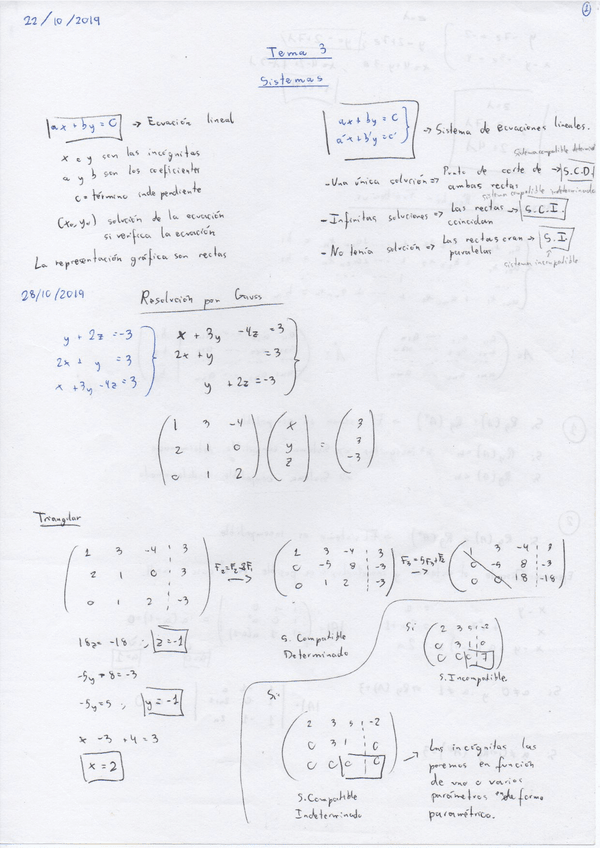 22/10/2019
1
Tema 3
Sistemas
ax + by = c → Ecuación lineal
x e y son las incógnitas
a y b son los coeficientes
c = término independiente
(x₀, y₀) solución de la ecuación
si verifica la ecuación
La representación gráfica son rectas
ax + by = c
a'x + b'y = c'
→ Sistema de ecuaciones lineales.
Sistema compatible determinado
- Una única solución ⇒ Punto de corte de ambas rectas → S.C.D.
sistema compatible indeterminado
- Infinitas soluciones ⇒ Las rectas coincidan → S.C.I.
- No tenía solución ⇒ Las rectas eran paralelas → S.I.
sistema incompatible
28/10/2019
Resolución por Gauss
y + 2z = -3
2x + y = 3
x + 3y - 4z = 3
x + 3y -4z = 3
2x + y = 3
y + 2z = -3
1 3 -4 x 3
2 1 0 y = 3
0 1 2 z -3
Triangular
1 3 -4 3
2 1 0 3
0 1 2 -3
F₂ = F₂ - 2F₁
1 3 -4 3
0 -5 8 -3
0 1 2 -3
F₃ = 5F₃ + F₂
1 3 -4 3
0 -5 8 -3
0 0 18 -18
18z = -18 ; z = -1
-5y + 8 = -3
-5y = 5 ; y = -1
x - 3 + 4 = 3
x = 2
S. Compatible
Determinado
Si
2 3 5 -2
0 3 1 0
0 0 0 7
S. Incompatible.
Si
2 3 5 -2
0 3 1 0
0 0 0 0
S. Compatible
Indeterminado
→ Las incógnitas las
ponemos en función
de uno o varios
parámetros de forma
paramétrico.